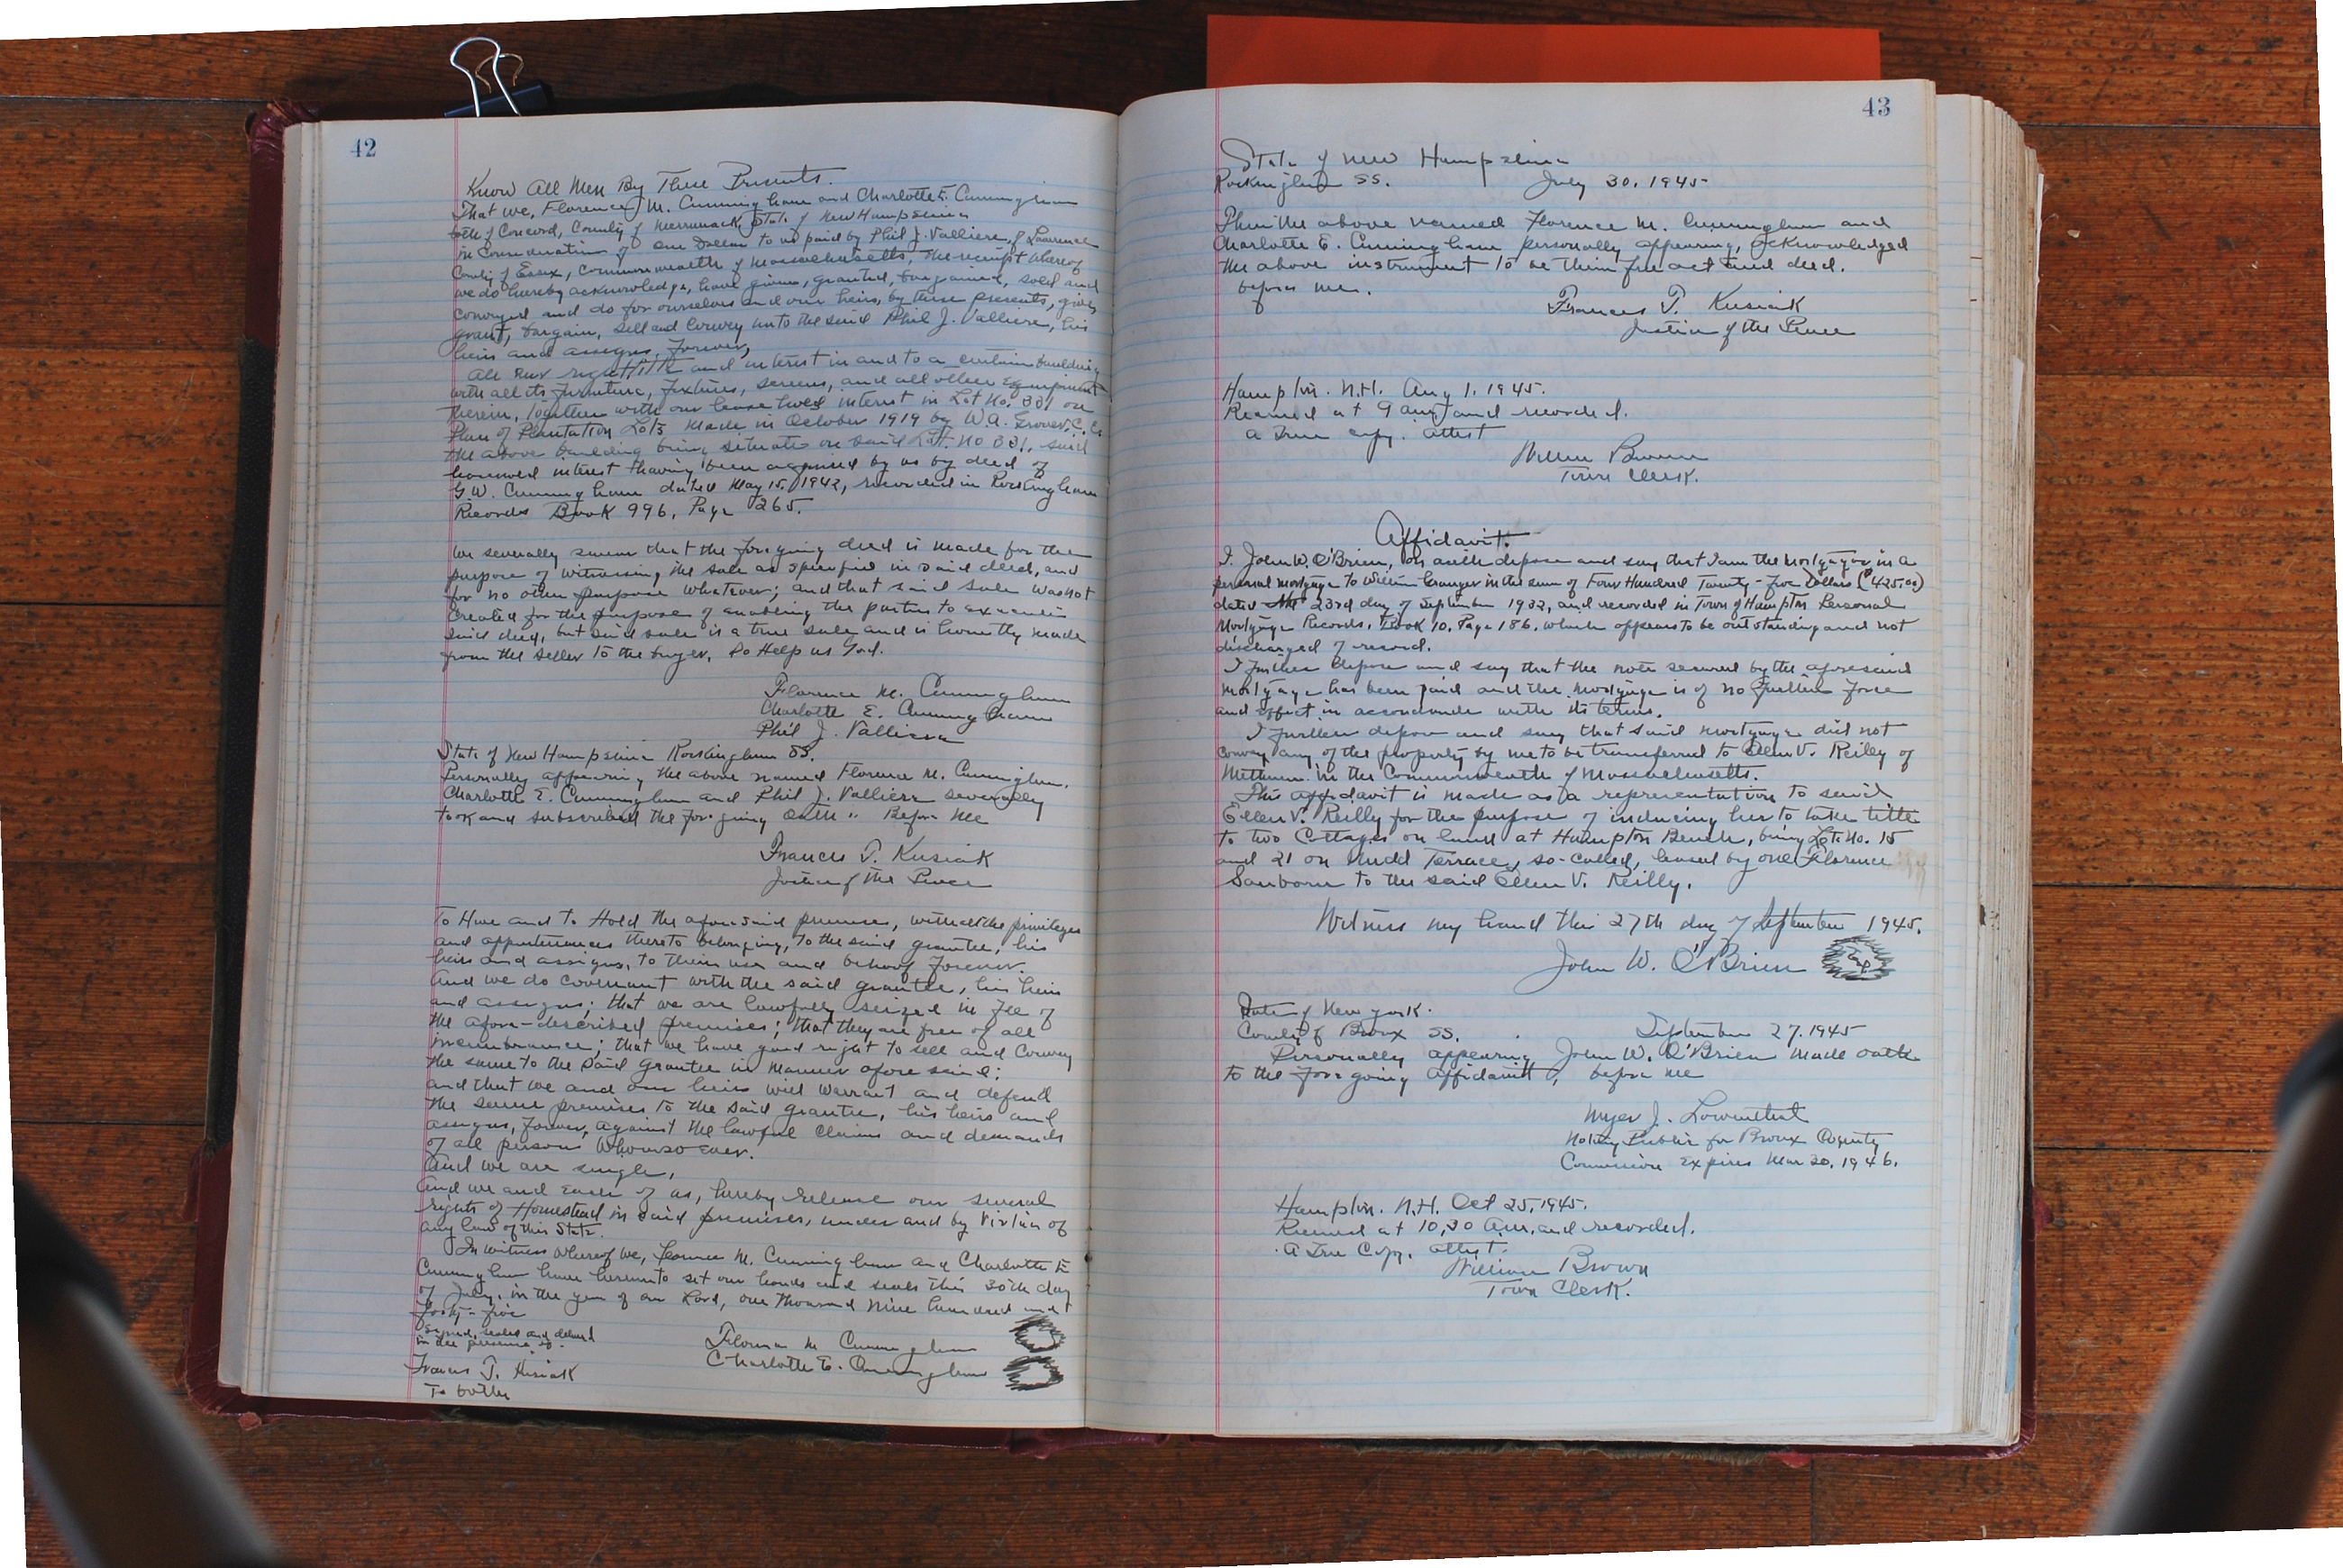 42
Know All Men By These Presents.
That we, Florence M. Cunningham and Charlotte E. Cunningham
both of Concord, County of Merrimack, State of New Hampshire
in consideration of One Dollar to us paid by Phil J. Valliere, of Lawrence
County of Essex, Commonwealth of Massachusetts, the receipt whereof
we do hereby acknowledge, have given, granted, bargained, sold and
conveyed and do for ourselves and our heirs, by these presents, give,
grant, bargain, sell and convey unto the said Phil J. Valliere, his
heirs and assigns, forever,
All our right, title and interest in and to a certain building
with all its furniture, fixtures, screens, and all other equipment
therein, together with our lease hold interest in Lot No. 331 on
Plan of Plantation Lots made in October 1919 by W.A. Grover, C.E.
the above building being situate on said Lot No 331, said
leasehold interest having been acquired by us by deed of
G.W. Cunningham dated May 15, 1942, recorded in Rockingham
Records Book 996, Page 265.
We severally swear that the foregoing deed is made for the
purpose of witnessing the sale as specified in said deed, and
for no other purpose whatever; and that said sale was not
created for the purpose of enabling the parties to execute
said deed, but said sale is a true sale and is honestly made
from the seller to the buyer. So Help us God.
Florence M. Cunningham
Charlotte E. Cunningham
Phil J. Valliere
State of New Hampshire Rockingham SS.
Personally appearing the above named Florence M. Cunningham,
Charlotte E. Cunningham and Phil J. Valliere severally
took and subscribed the foregoing oath " Before Me
Francis T. Kusiak
Justice of the Peace
To Have and to Hold the aforesaid premises, with all the privileges
and appurtenances thereto belonging, to the said grantee, his
heirs and assigns, to their use and behoof forever.
And we do covenant with the said grantee, his heirs
and assigns; that we are lawfully seized in fee of
the afore-described premises; that they are free of all
incumbrance; that we have good right to sell and convey
the same to the said grantee in manner afore said;
and that we and our heirs will warrant and defend
the same premises to the said grantee, his heirs and
assigns, forever, against the lawful claims and demands
of all persons whomsoever.
And we are single,
And we and each of us, hereby release our several
rights of Homestead in said premises, under and by virtue of
any law of this State.
In witness whereof we, Florence M. Cunningham and Charlotte E
Cunningham have hereunto set our hands and seals this 30th day
of July, in the year of our Lord, one thousand nine hundred and
forty-five
Signed, sealed and delivered
in the presence of.
Florence M Cunningham
Charlotte E. Cunningham
Francis T. Kusiak
To both
43
State of New Hampshire
Rockingham SS. July 30, 1945
Then the above named Florence M. Cunningham and
Charlotte E. Cunningham personally appearing, acknowledged
the above instrument to be their free act and deed.
before me.
Francis T. Kusiak
Justice of the Peace
Hampton. N.H. Aug 1. 1945.
Received at 9 am and recorded.
a True copy. attest
William Brown
Town Clerk.
Affidavit.
I. John W. O'Brien, on oath depose and say that I am the Mortgagor in a
personal mortgage to William Granger in the sum of Four Hundred Twenty-five Dollars ($425.00)
dated the 23rd day of September 1932, and recorded in Town of Hampton Personal
Mortgage Records. Book 10. Page 186. which appears to be outstanding and not
discharged of record.
I further depose and say that the note secured by the aforesaid
mortgage has been paid and the mortgage is of no further force
and effect in accordance with its terms.
I further depose and say that said mortgage did not
convey any of the property by me to be transferred to Ellen V. Reilly of
Methuen in the Commonwealth of Massachusetts.
This affidavit is made as a representation to said
Ellen V. Reilly for the purpose of inducing her to take title
to two Cottages on land at Hampton Beach, being Lots No. 15
and 21 on Mudd Terrace, so-called, leased by one Florence
Sanborn to the said Ellen V. Reilly.
Witness my hand this 27th day of September 1945.
John W. O'Brien
State of New York.
County of Bronx SS. September 27. 1945
Personally appearing John W. O'Brien made oath
to the foregoing affidavit, before me
Myer J. Lowenthal
Notary Public for Bronx County
Commission Expires Mar 30. 1946.
Hampton. N.H. Oct 25, 1945.
Received at 10,30 Am. and recorded.
A True Copy. attest.
William Brown
Town Clerk.